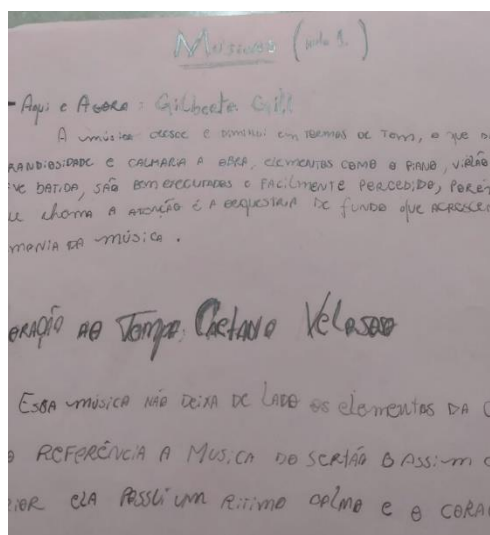 Músicas (aula 1.)
- Aqui e Agora: Gilberte Gill
A música cresce e diminui em termas de Tom, o que
RANDIOSIDADE e CALMARIA A OBRA, elementos como o PIANO, VIOLÃO
VE BATIDA, SÃO bem executados e FACILMENTE PERCEBIDO, PORÉM
ue chama A ATENÇÃO É A ORQUESTRIA DE FUNDO que ACRESCE
MONIA DA MÚSICA.
ORAÇÃO AO Tempo: Caetano Velosoo
ESSA MÚSICA NÃO DEIXA DE LADO os elementos DA
REFERÊNCIA A MUSICA DO SERTÃO
RIOR ELA POSSUI UM RITIMO CALMO e O CORA